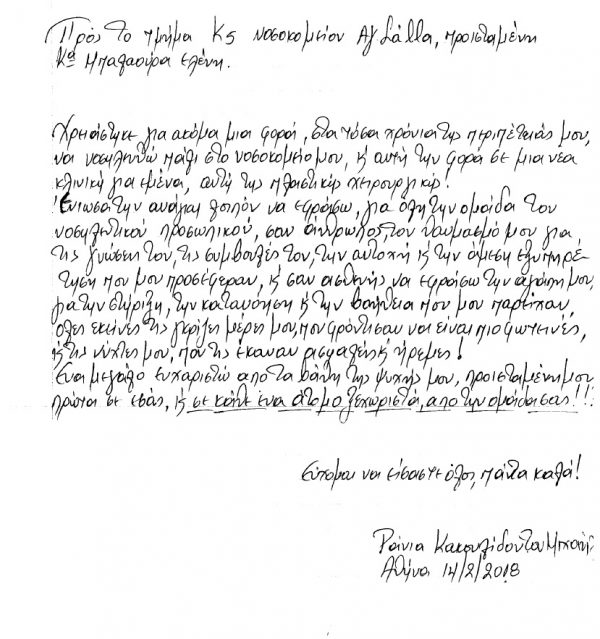 Προς το τμήμα Κ5 νοσοκομείον Αγ Σάββα, προϊσταμένη
Κα Μπαθασούρα Ελένη.
Χρειάστηκε για ακόμα μια φορά, στα τόσα χρόνια της περιπέτειάς μου,
να νοσηλευτώ πάλι στο νοσοκομείο μου, κ αυτή την φορά σε μια νέα
κλινική για εμένα, αυτή της πλαστικής χειρουργικής!
Ένιωσα την ανάγκη λοιπόν να εκφράσω, για όλη την ομάδα του
νοσηλευτικού προσωπικού, σαν άνθρωπος, τον θαυμασμό μου για
τις γνώσεις του, τις συμβουλές του, την αντοχή κ την άμεση εξυπηρέ-
τηση που μου προσέφεραν, κ σαν ασθενής, να εκφράσω την αγάπη μου,
για την στήριξη, την κατανόηση κ την βοήθεια που μου παρείχαν,
όλες εκείνες τις γκρίζες μέρες μου, που φρόντισαν να είναι πιο φωτεινές,
κ τις νύχτες μου, που τις έκαναν ασφαλείς κ ήρεμες!
Ένα μεγάλο ευχαριστώ από τα βάθη της ψυχής μου, προϊσταμένη μου
πρώτα σε εσάς, κ σε κάθε ένα άτομο ξεχωριστά, από την ομάδα σας!!!
Εύχομαι να είσαστε όλοι, πάντα καλά!
Ράνια Κακουλίδου του
Αθήνα 14/2/2018